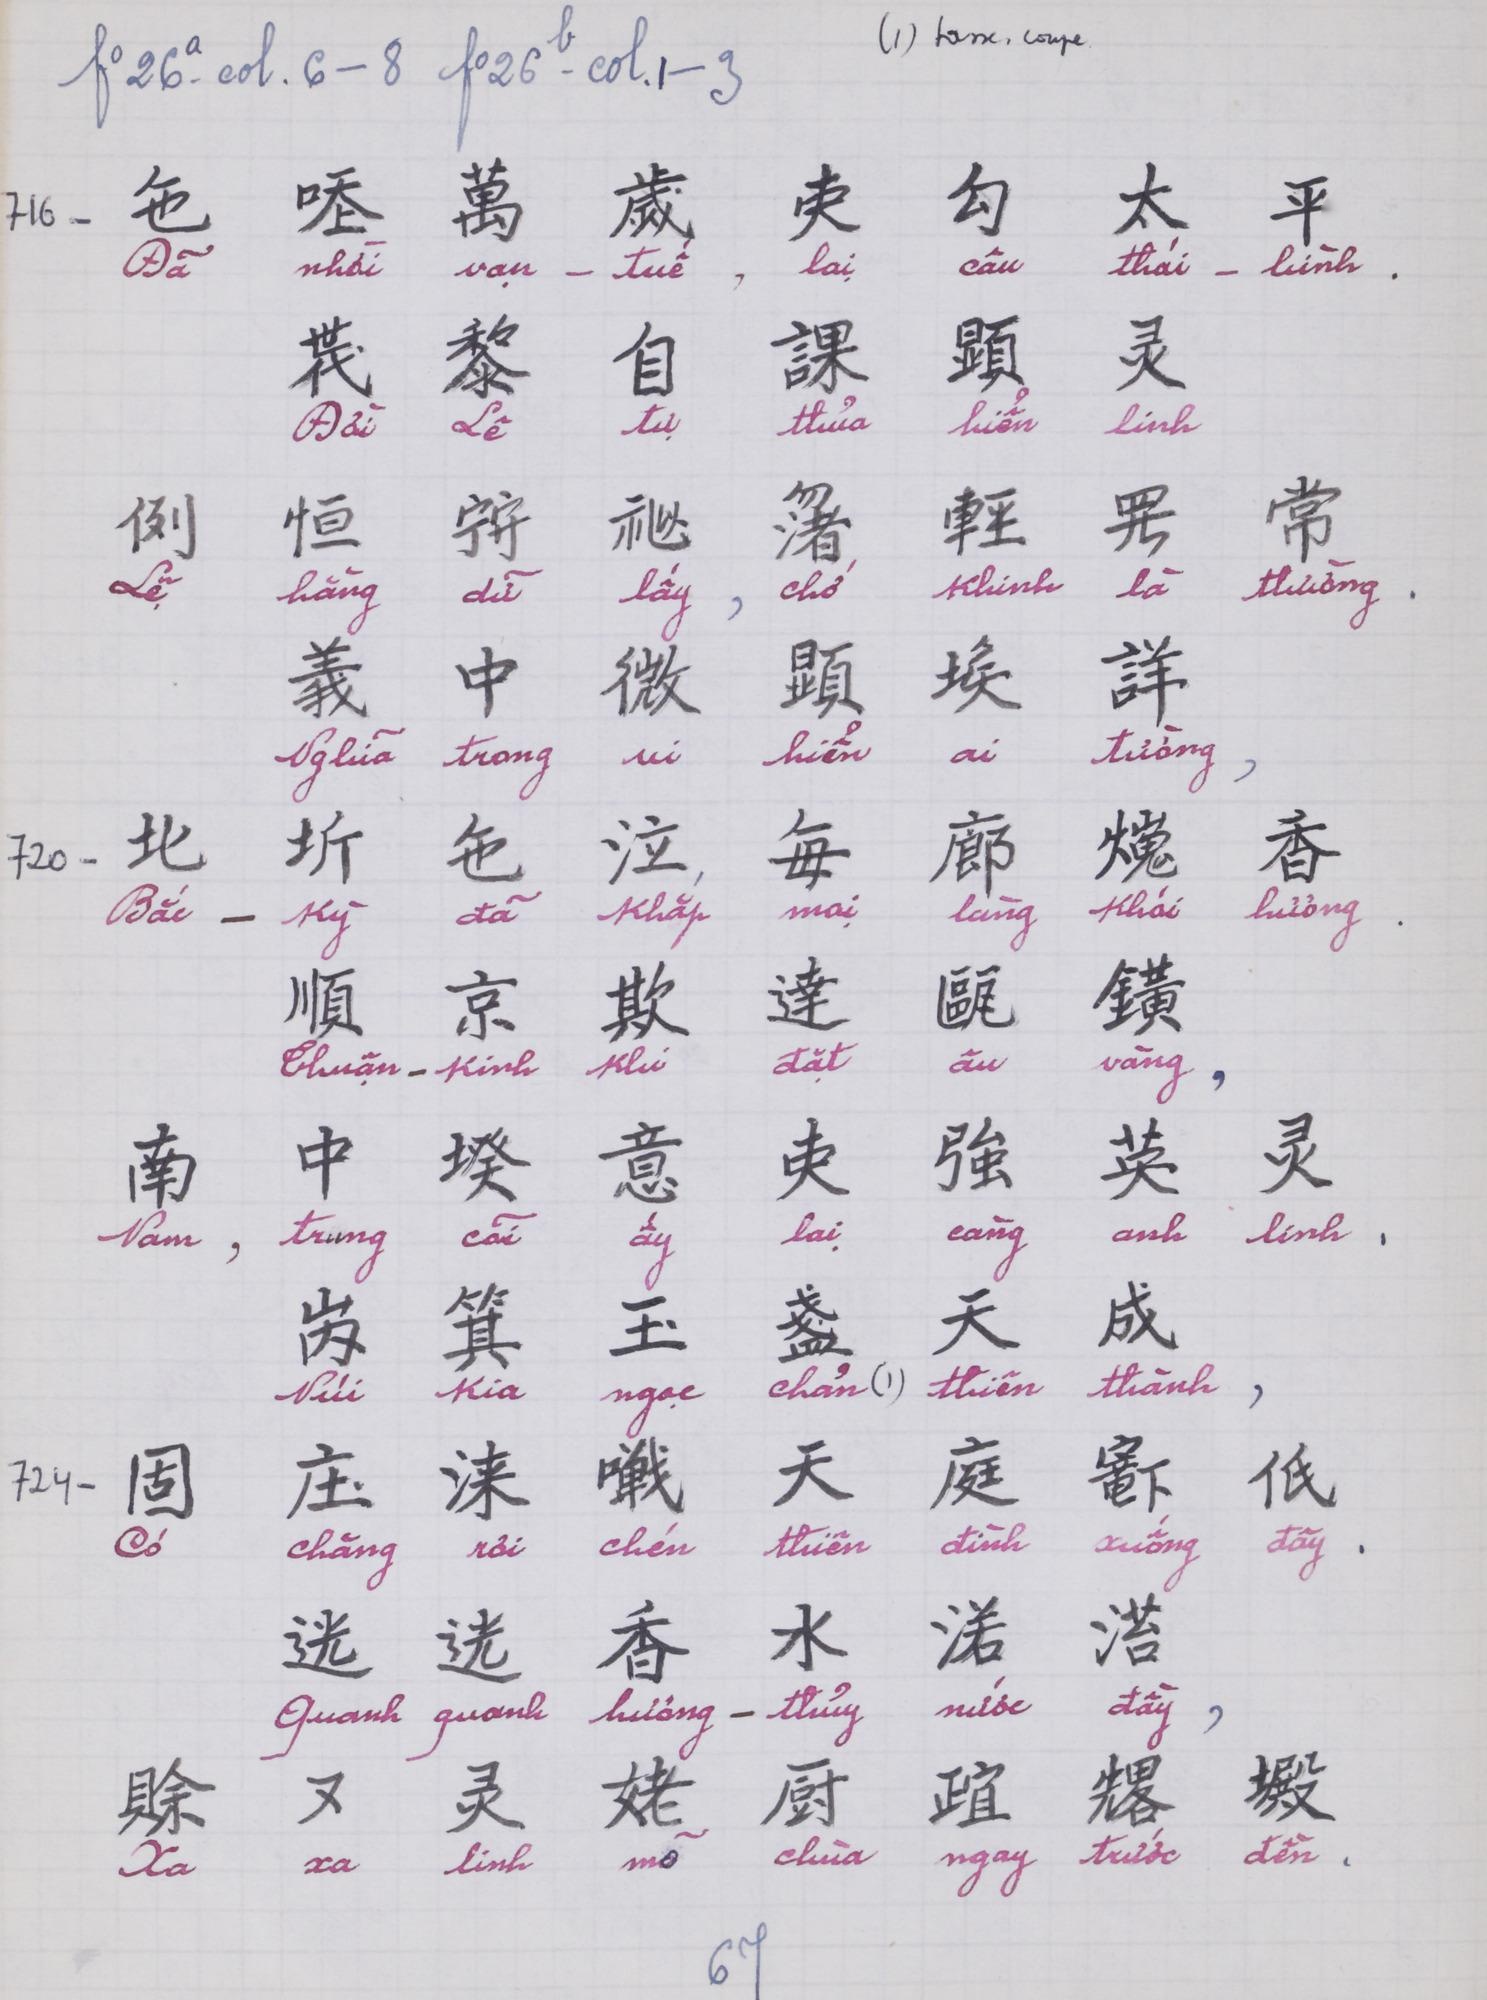 fº 26ª - col. 6 – 8 fº 26ᵇ - col. 1 – 3
(1) tasse, coupe.
716 - 㐌 㗚 萬 歲 吏 勾 太 平
Đã nhời vạn – tuế, lại câu thái – bình.
黎 自 課 顕 灵
Đời Lê tự thủa hiển linh
例 恒 祕 輕 罖 常
Lệ hằng dữ lấy, chớ khinh là thường.
義 中 微 顕 埃 詳
Nghĩa trong vi hiển ai tường,
720 - 北 圻 㐌 泣 每 廊 熴 香
Bắc – Kỳ đã khắp mọi làng khói hương.
順 京 欺 達 甌 鐄
Thuận – Kinh khi đặt âu vàng,
南 中 揆 意 吏 強 英 灵
Nam, trung cõi ấy lại càng anh linh.
箕 玉 盞 天 成
Núi kia ngọc chản (1) thiên thành,
724 - 固 庄 洡 天 庭 低
Có chăng rơi chén thiên đình xuống đây.
迯 迯 香 水 渃 溚
Quanh quanh hương – thủy nước đầy,
賖 又 灵 姥 厨 𣦍 𠓀 塅
Xa xa linh mỗ chùa ngay trước đền.
67